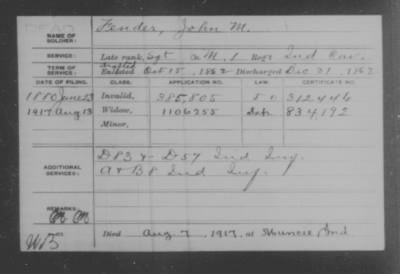 DEAD
NAME OF SOLDIER: Fender, John M.
SERVICE: Late rank, Sgt Co. M, 1 Reg't Ind Cav.
TERM OF SERVICE: Enrolled Enlisted Oct 15, 1862 Discharged Dec 31, 1862
DATE OF FILING. CLASS. APPLICATION NO. LAW. CERTIFICATE NO.
1880 June 23 Invalid, 385,805 312446
1917 Aug 13 Widow, 1106255 834192
Minor,
ADDITIONAL SERVICES: D 83 & D 57 Ind Inf.
A & B 8 Ind Inf.
REMARKS:
Died Aug 7, 1917, at Muncie Ind